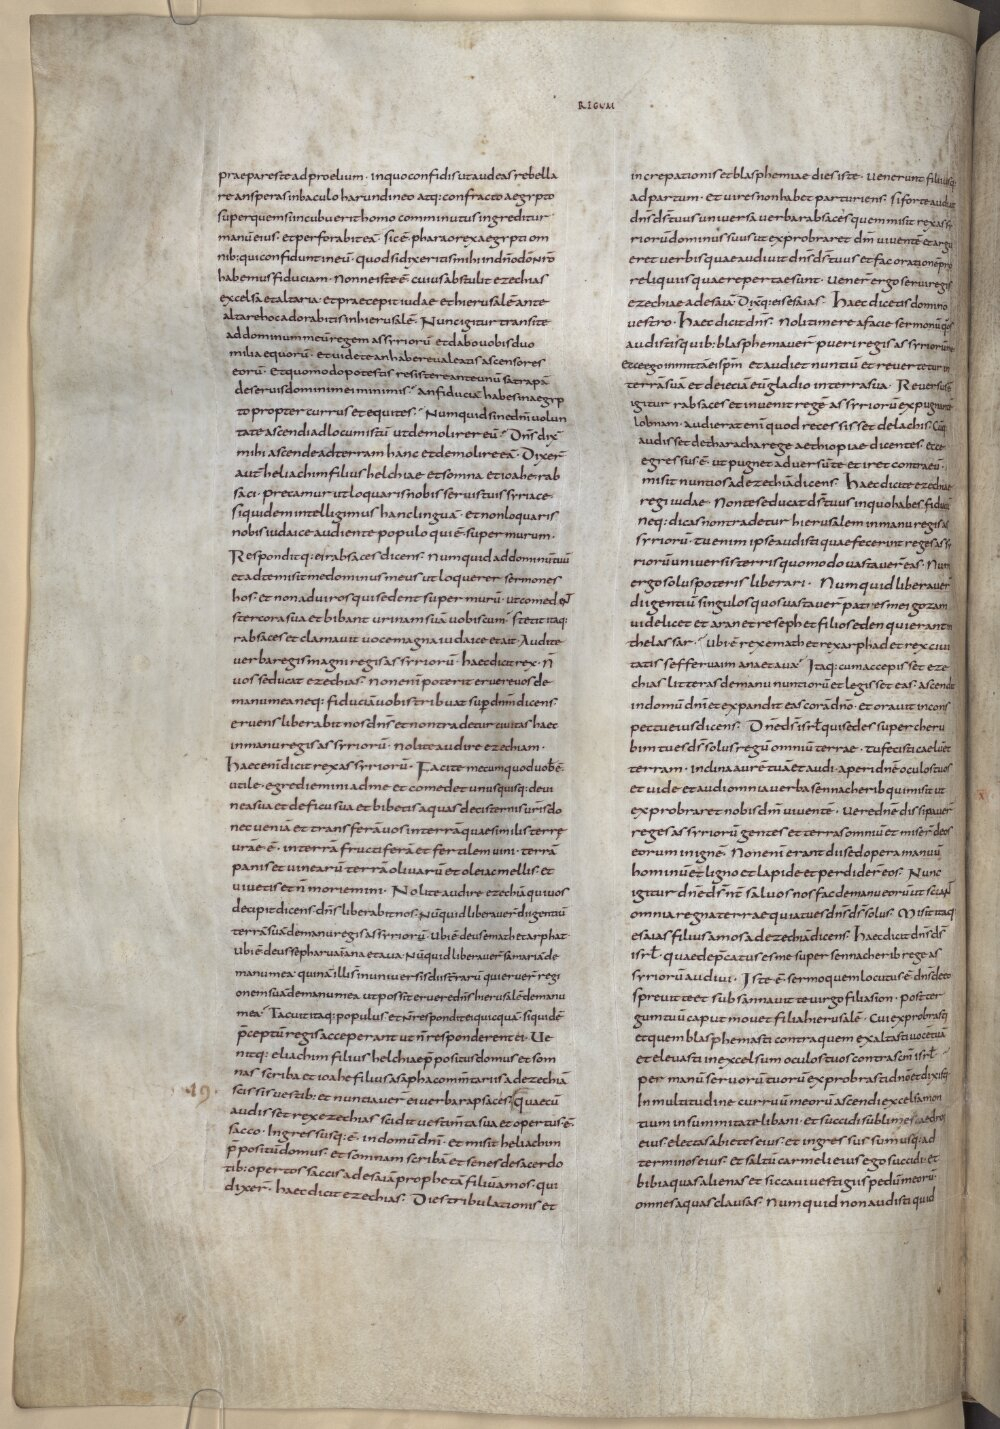 REGUM
praeparesteadproelium· inquoconfidisutaudeasrebella
re ansperasinbaculo harundineo atq; confracto aegypto
superquemsiincubuerithomo comminutus ingreditur
manūeius· etperforabiteā· sicē pharaorexaegypti om
nib; quiconfidunt ineū· quodsidixeritismihi indn̄odōnr̄o
habemus fiduciam· Nonneisteē cuiusabstulit ezechias
excelsa etaltaria· etpraecepit iudae ethierusalē ante
altarehocadorabitisinhierusalē· Nuncigitur transite
addominummeūregem assyriorū etdabouobisduo
milia equorū· etuidete anhabereualeatis ascensores
eorū· Etquomodopotestis resistere anteunū satrapā
deseruisdominimei minimis· anfiduciā habesinaegyp
to propter currus et equites· Numquidsinednī uolun
tate ascendiadlocumistū utdemolirer eū· Dns̄dix̄
mihi ascendeadterram hanc etdemolireeā· Dixer̄
aut̄ heliachim filius helchiae etsomna etioahe rab
saci· precamur utloquarisnobis seruistuis syriace
siquidem intelligimus hanclinguā· et nonloquaris
nobis iudaice audiente populo qui ē super murum·
Responditq; eirabsaces dicens· numquid addominūtuū
etadtemisitmedominus meus ut loquerer sermones
hos· et non aduiros quisedent super murū· utcomedant
stercorasua et bibant urinam suā uobiscum· stetit itaq;
rabsaces et clamauit uocemagna iudaice etait· Audite
uerbaregismagni regis assyriorū· haecdicit rex· n̄
uos seducat ezechias· nonenī poterit eruereuosde
manumea neq; fiduciā uobis tribuat sup dnm̄ dicens·
eruens liberabit nosdns̄ etnontradetur ciuitas haec
inmanuregis assyriorū· nolite audire ezechiam·
haecenīdicit rexassyriorū· Facite mecumquoduobēē
utile· egredieminiadme et comedet unusquisq; deui
neasua et deficu sua et bibetis aquas decisternis ur̄isdo
nec ueniā et transferāuos interrā quaesimilis terrę
urāe ē· interrā fructiferā et fertilem uini· terrā
panis et uinearū terrā oliuarū et oleiacmellis· et
uiuetis et n̄ moriemini· Nolite audire ezechiā quiuos
decipit dicens· dns̄ liberabit nos· Nūquid liberauer̄ dii gentiū
terrāsuādemanuregis assyriorū· Ubiē deus emath etarphat·
ubi ē deus sepharuaī ana et aua· Nūquid liberauer̄ samariāde
manumea· quinā illis inuniuersis diis terrarū quieruer̄ regi
onemsuādemanumea ut possit eruere dns̄ hierusalē demanu
mea· Tacuit itaq; populus et n̄ respondit ei quicquā· siquidē
p̄ceptū regis acceperant ut n̄ responderent ei· Ue
nitq; eliachim filius helchiae p̄positus domus· et som
nas scriba et ioahe filius asaph acommentariis ad ezechiā
19· scissis uestib; et nuntiauer̄ eiuerbarapsaces· Quaecū
audisset rex ezechias scidit uestim̄ta sua et opertus ē
sacco· Ingressusq; ē indomū dnī· et misit heliachim
p̄positū domus· et somnam scribā et senes desacerdo
tib; opertos saccis ad esaiā prophetā filiū amos· qui
dixer̄· haec dicit ezechias· Dies tribulationis et
increpationis et blasphemiae dies iste· uenerunt filiiusq;
ad partum· et uires non habet parturiens· si forte audiat
dns̄ ds̄ tuus uniuersa uerba rabsaces quem misit rex assy
riorū dominus suus ut exprobraret dm̄ uiuentē et argu
eret uerbis quae audiuit dns̄ ds̄ tuus et fac orationē pro
reliquiis quae repertae sunt· uener̄ ergo serui regis
ezechiae ad esaiā· Dixq; eis esaias· Haec dicetis domino
uestro· Haec dicit dns̄· Noli timere a facie sermonū quos
audisti quib; blasphemauer̄ pueri regis assyriorū me
Ecce ego inmittā ei spm̄· et audiet nuntiū et reuertetur in
terrā suā et deieciā eū gladio interra sua· Reuersus ē
igitur rabsaces et inuenit regē assyriorū expugnantē
lobnam· audierat enī quod recessisset de lachis· Cūq;
audisset de tharacha rege aethiopiae dicentes· ecce
egressus ē· ut pugnet aduersū te et iret contra eū·
misit nuntios ad ezechiā dicens· Haec dicite ezechiae
regi iudae· Non te seducat ds̄ tuus in quo habes fiduciā
neq; dicas non tradetur hierusalem in manu regis as
syriorū· tu enim ipse audisti quae fecerint reges assy
riorū uniuersis terris quomodo uastauer̄ eas· Num
ergo solus poteris liberari· Numquid liberauer̄
dii gentiū singulos quos uastauer̄ patres mei gozam
uidelicet et aran et reseph et filios eden qui erant in
thelassar· Ubi ē rex emath et rex arphad et rex ciui
tatis seffaruaim ana et aua· Itaq; cum accepisset eze
chias litteras de manu nuntiorū et legisset eas· ascendit
in domū dnī et expandit eas corā dnō· et orauit in cons
pectu eius dicens· Dnē ds̄ isrl̄ qui sedes super cheru
bim tu es ds̄ solus regū omniū terrae· tu fecisti caelū et
terram· inclina aurē tuā et audi· aperi dnē oculos tuos
et uide et audi omnia uerba sennacherib qui misit ut
exprobraret nobis dm̄ uiuentē· Uere dnē dissipauer̄
reges assyriorū gentes et terras omniū et miser̄ deos
eorum in ignē· Non enī erant dii sed opera manuū
hominū et̄ ligno et lapide et perdider̄ eos· Nunc
igitur dnē ds̄ nr̄ saluos nos fac de manu eorū ut sciant
omnia regna terrae quia tu es dns̄ ds̄ solus· Misit itaq;
esaias filius amos ad ezechiā dicens· Haec dicit dns̄ ds̄
isrl̄· quae dep̄catus es me super sennacherib rege as
syriorū audiui· Iste ē sermo quem locutus ē dns̄ de eo
spreuit te et subsannauit te uirgo filia sion· post ter
gum tuū caput mouet filia hierusalē· Cui exprobrasti
et quem blasphemasti contra quem exaltasti uocē tuā
et eleuasti in excelsum oculos tuos contra scm̄ isrl̄·
per manū seruorū tuorū exprobrasti dnō et dixisti·
In multitudine curruū meorū ascendi excelsa mon
tium in summitate libani· et succidi sublimes caedros
eius electas abietes eius· et ingressus sum usq; ad
terminos eius· et saltū carmeli eius ego succidi· et
bibi aquas alienas et siccaui uestigiis pedū meorū
omnes aquas clausas· Numquid non audisti quid